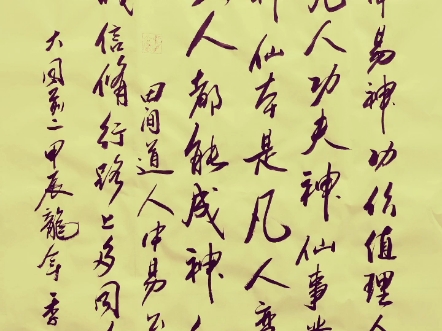 中易神功价值理人
凡人功夫神仙事
神仙本是凡人变
人都能成神
田间道人中易
信脩行路上多同
大同二甲辰龍年季